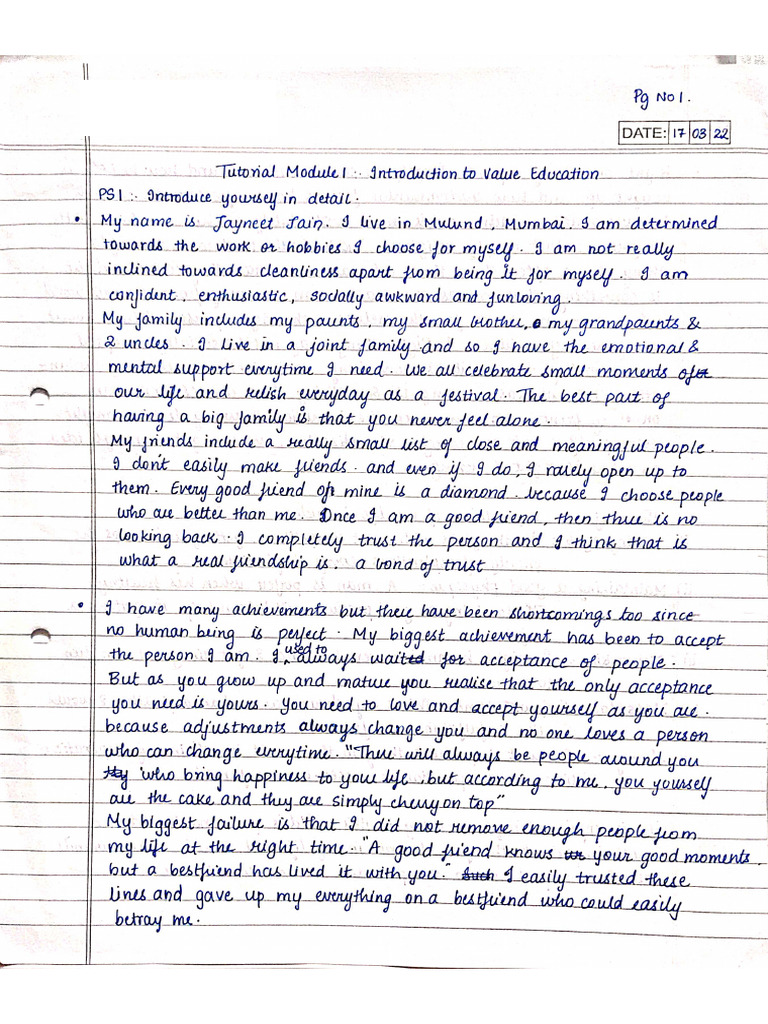 Pg No 1.
DATE: 17 03 22
Tutorial Module 1 :- Introduction to Value Education
PS 1 :- Introduce yourself in detail.
• My name is Jayneet Jain. I live in Mulund, Mumbai. I am determined
towards the work or hobbies I choose for myself. I am not really
inclined towards cleanliness apart from being it for myself. I am
confident, enthusiastic, socially awkward and funloving.
My family includes my parents, my small brother, my grandparents &
2 uncles. I live in a joint family and so I have the emotional &
mental support everytime I need. We all celebrate small moments of
our life and relish everyday as a festival. The best part of
having a big family is that you never feel alone.
My friends include a really small list of close and meaningful people.
I don't easily make friends. and even if I do, I rarely open up to
them. Every good friend of mine is a diamond. because I choose people
who are better than me. Once I am a good friend, then there is no
looking back. I completely trust the person and I think that is
what a real friendship is, a bond of trust
• I have many achievements but there have been shortcomings too since
no human being is perfect. My biggest achievement has been to accept
the person I am. I used to always wait for acceptance of people.
But as you grow up and mature you realise that the only acceptance
you need is yours. You need to love and accept yourself as you are.
because adjustments always change you and no one loves a person
who can change everytime. "There will always be people around you
who bring happiness to your life, but according to me, you yourself
are the cake and they are simply cherry on top"
My biggest failure is that I did not remove enough people from
my life at the right time. "A good friend knows your good moments,
but a bestfriend has lived it with you." I easily trusted these
lines and gave up my everything on a bestfriend who could easily
betray me.